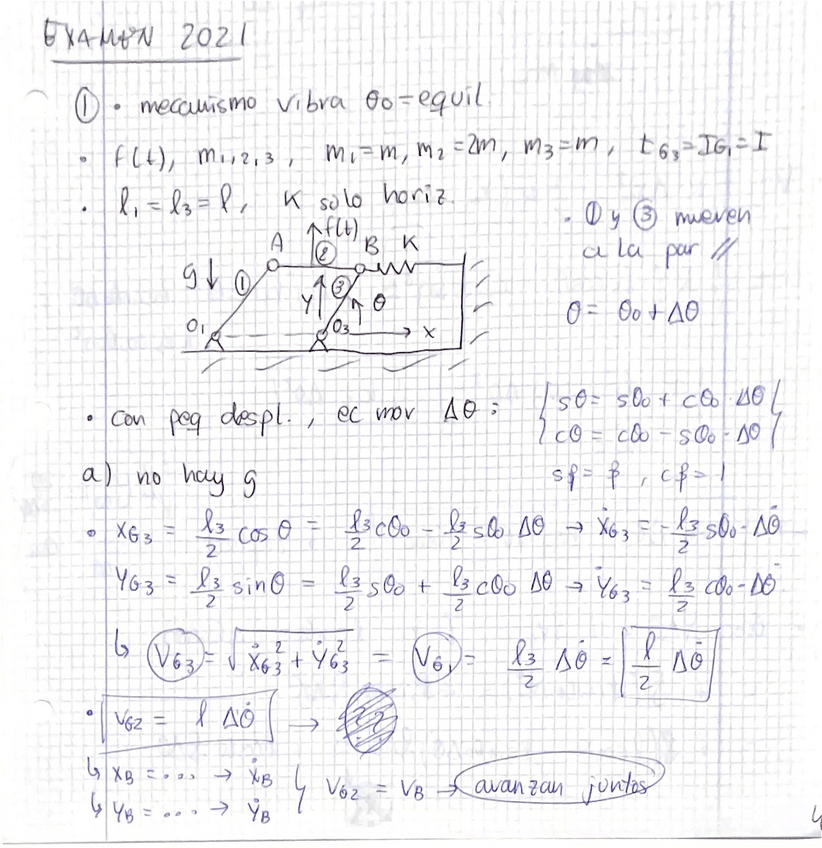 EXAMEN 2021
① • mecanismo vibra θ₀ = equil.
• f(t), m₁,₂,₃, m₁ = m, m₂ = 2m, m₃ = m, I_G₃ = I_G₁ = I
• l₁ = l₃ = l, K solo horiz.
• ① y ③ mueven
a la par //
θ = θ₀ + Δθ
f(t)
A ② B K
g ↓ ① Y ③ θ
O₁ O₃ x
• con peq despl., ec mov Δθ: { sθ = sθ₀ + cθ₀ · Δθ }
{ cθ = cθ₀ - sθ₀ · Δθ }
a) no hay g sβ = β, cβ = 1
• X_G3 = l₃/2 cos θ = l₃/2 cθ₀ - l₃/2 sθ₀ Δθ → Ẋ_G3 = - l₃/2 sθ₀ · Δθ̇
Y_G3 = l₃/2 sin θ = l₃/2 sθ₀ + l₃/2 cθ₀ Δθ → Ẏ_G3 = l₃/2 cθ₀ · Δθ̇
↳ V_G3 = √(Ẋ_G3² + Ẏ_G3²) = V_G1 = l₃/2 Δθ̇ = l/2 Δθ̇
• V_G2 = l Δθ̇ →
↳ X_B = .... → Ẋ_B
↳ Y_B = .... → Ẏ_B } V_G2 = V_B → avanzan juntos